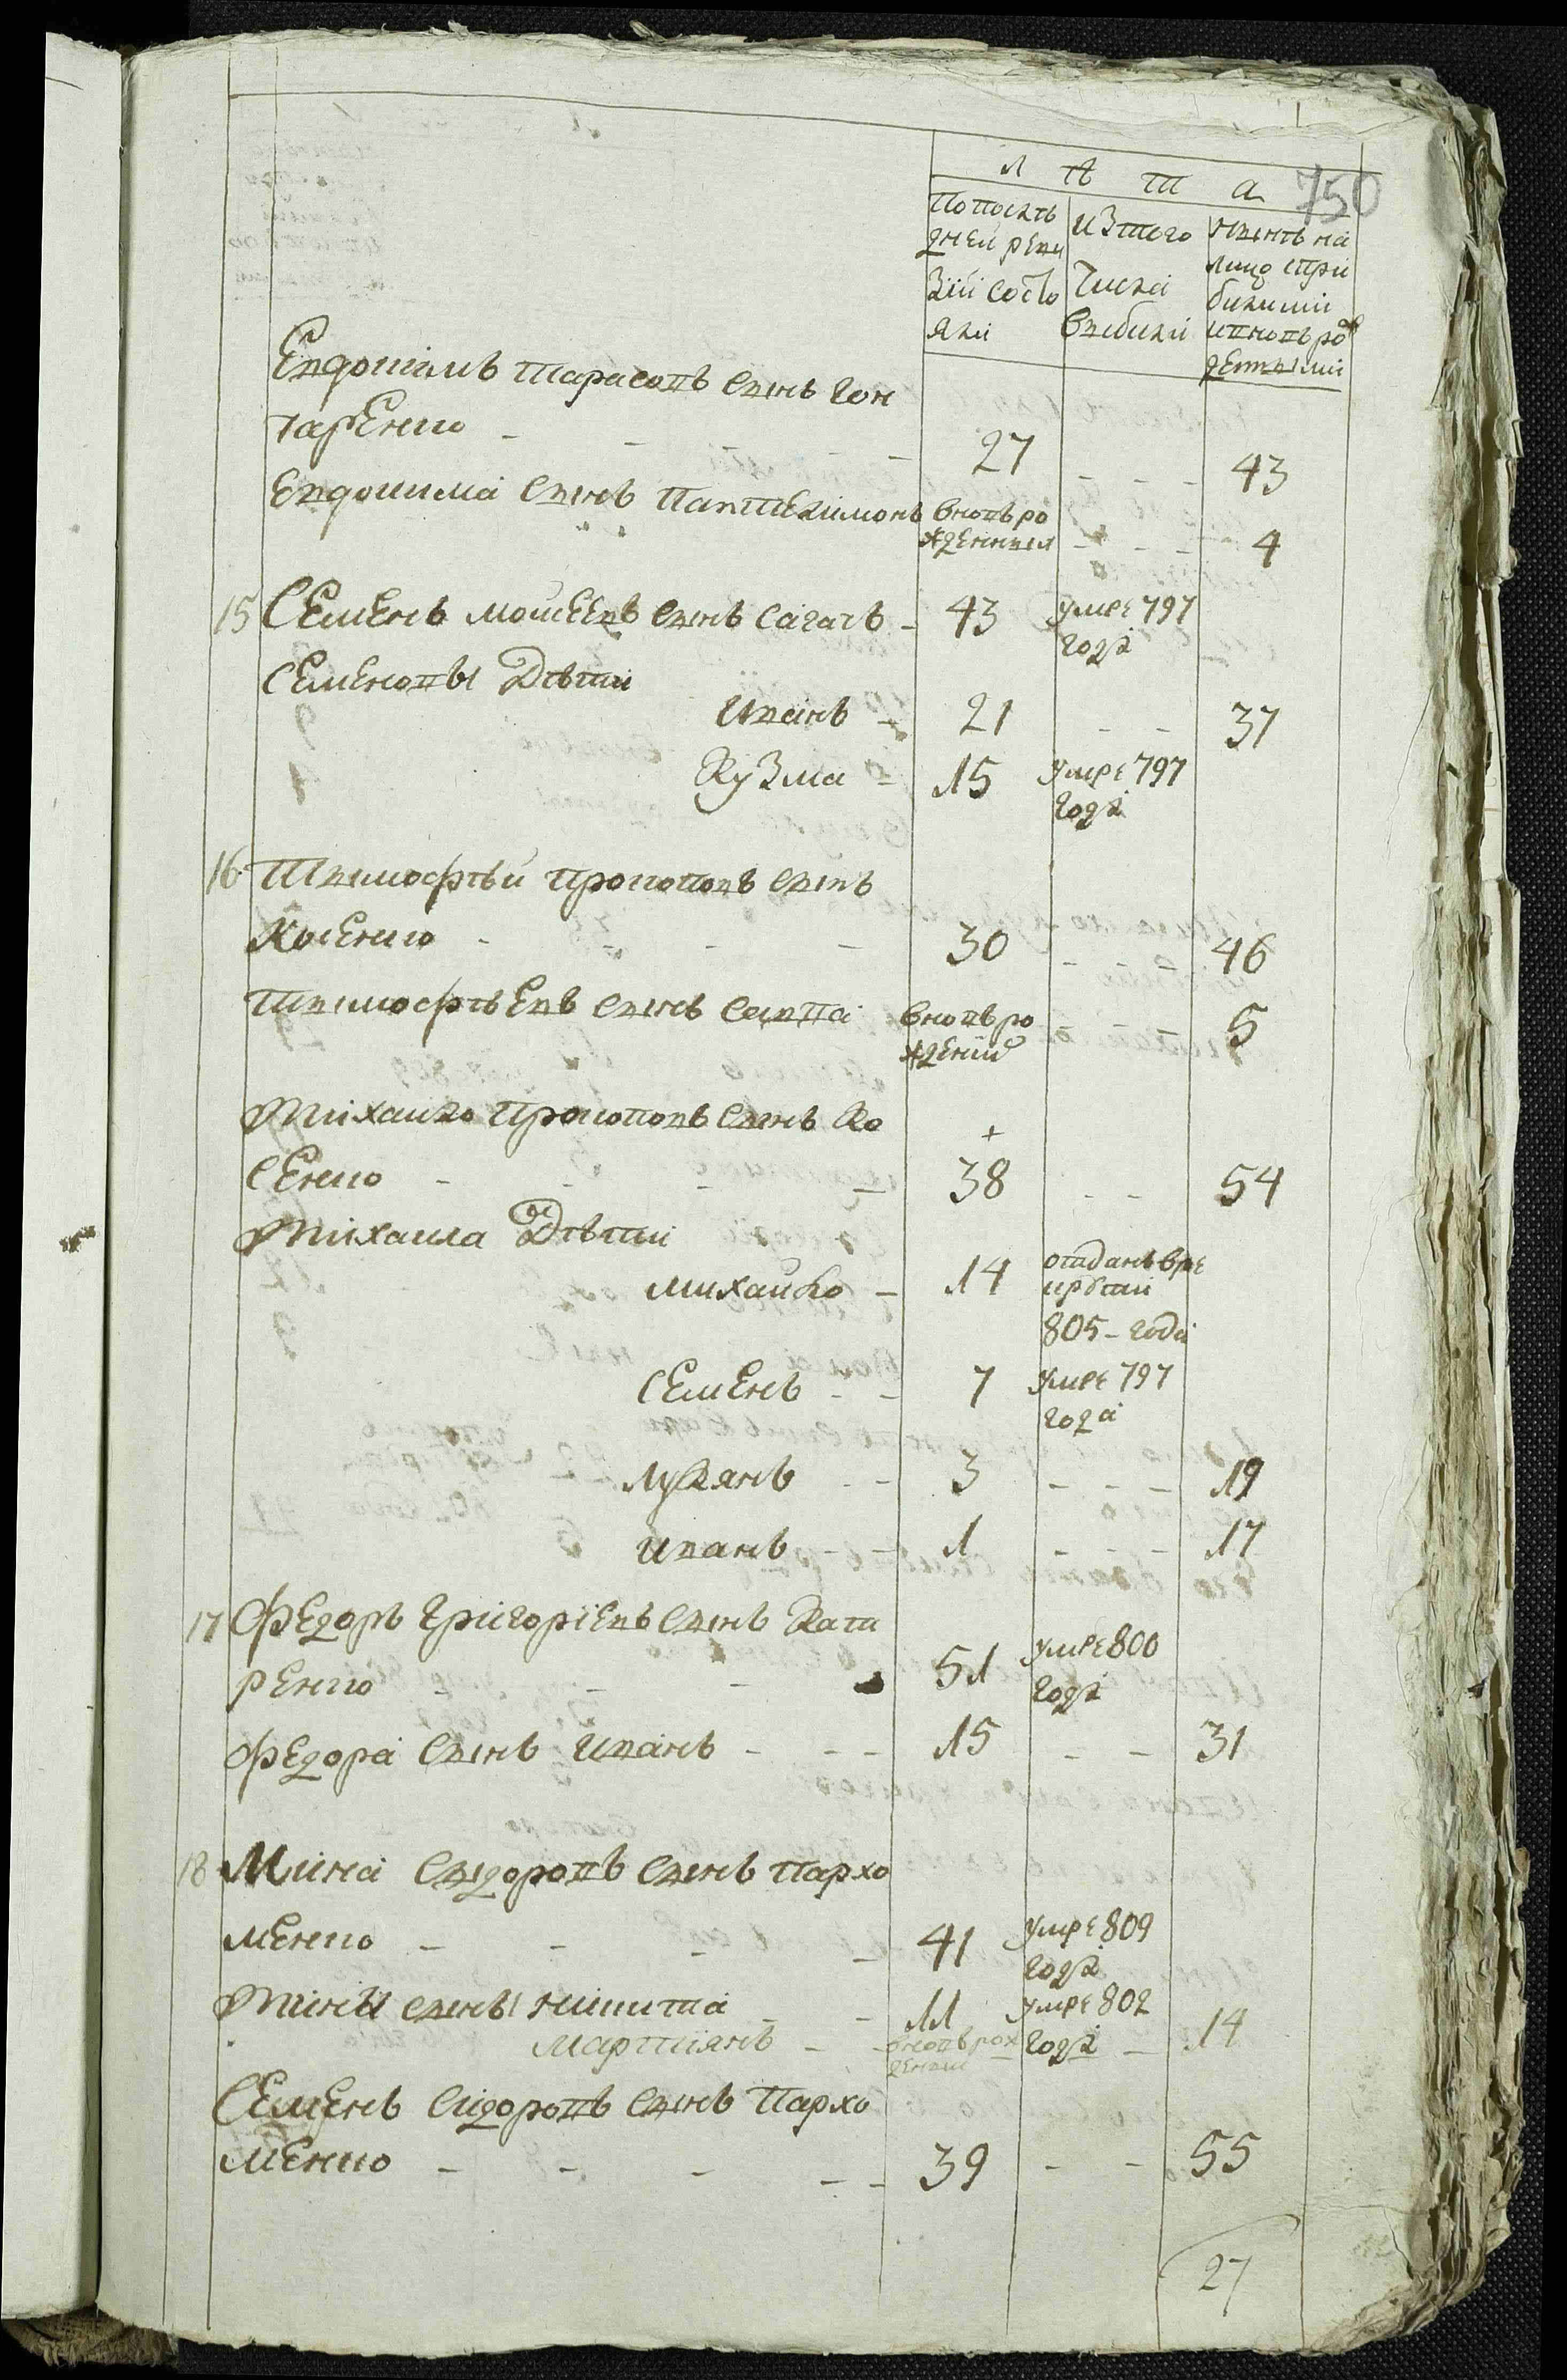 750
лѣта
Попослѣ
дней реви
зіи состо
яли
изтого
числа
выбыли
нынѣ на
лицо спри
былыми
ивновь ро
жденными
Евдокимъ Тарасовъ сынъ Гон
чаренко - - - 27 - - - 43
Евдокима сынъ Пантелимонъ вновь ро
жденный - - - 4
15 Семенъ Мойсеевъ сынъ Сагачъ - 43 умре 797
года
Семеновы Дѣти
Иванъ - 21 - - 37
Кузма - 15 умре 797
года
16 Тимофѣй Прокоповъ сынъ
Косенко - - - - 30 - - - 46
Тимофѣевъ сынъ Савва вновь ро
жденій - - - 5
Михайло Прокоповъ сынъ Ко
сенко - - - - 38 - - 54
Михайла Дѣти
Михайло - 14 отданъ вре
крути
805 - года
Семенъ - - 7 умре 797
года
Лукянъ - - 3 - - - 19
Иванъ - - 1 - - - 17
17 Федоръ Григоріевъ сынъ Ката
ренко - - - 51 умре 800
года
Федора сынъ Иванъ - - - 15 - - 31
18 Мина Сидоровъ сынъ Пархо
менко - - - - 41 умре 809
года
Мины сыны Никита - - 11 умре 802
года
Мартіянъ - - вновь рож
деній - 14
Семенъ Сидоровъ сынъ Пархо
менко - - - - - 39 - - 55
27